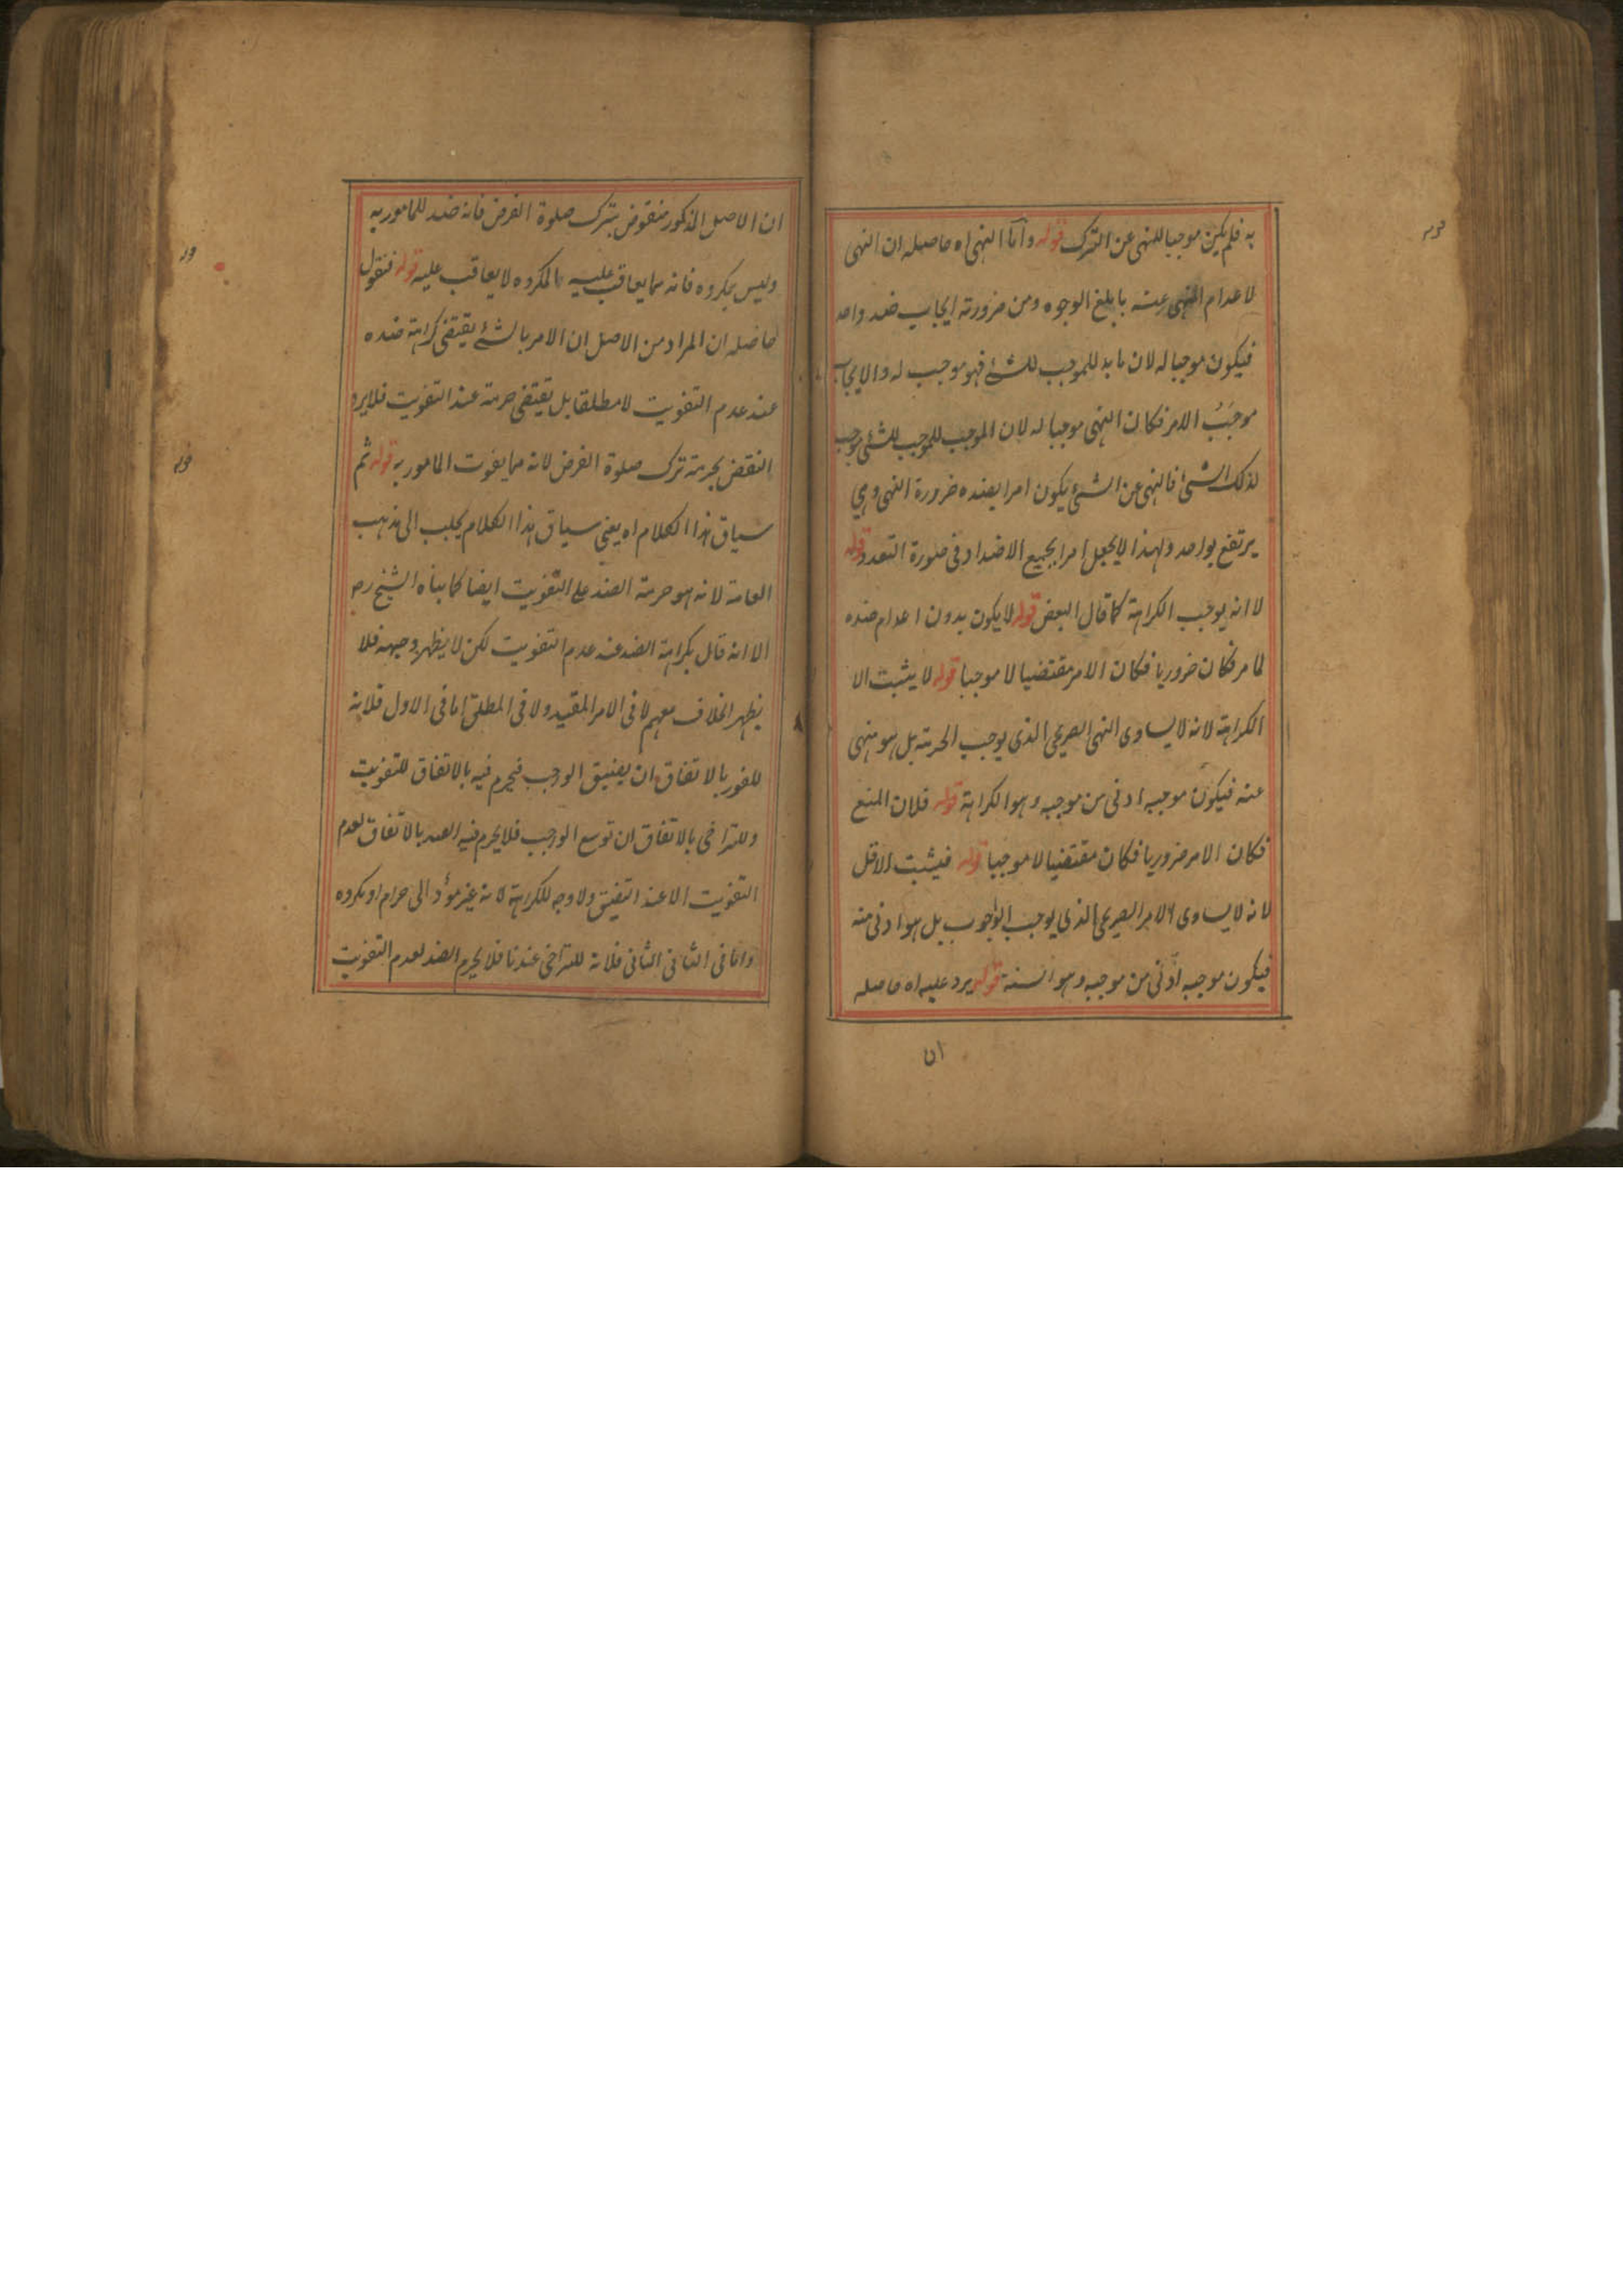 به فلم يكن موجبا للنهى عن الترك قوله واما النهى اه حاصله ان النهى
لاعدام المنهى عنه بابلغ الوجوه ومن ضرورته ايجاب ضد واحد
فيكون موجبا له لان ما بد للموجب للشئ فهو موجب له والايجاب
موجَبُ الامر فكان النهى موجبا له لان الموجب للموجب للشئ موجب
لذلك الشئ فالنهى عن الشئ يكون امرا بضده ضرورة النهى وهي
يرتفع بواحد ولهذا لا يجعل امرا بجميع الاضداد فى صورة التعدد قوله
لا انه يوجب الكراهة كما قال البعض قوله لا يكون بدون اعدام ضده
لما مر فكان ضروريا فكان الامر مقتضيا لا موجبا قوله لا يثبت الا
الكراهة لانه لا يساوى النهى الصريح الذى يوجب الحرمة بل هو منهى
عنه فيكون موجبه ادنى من موجبه وهو الكراهة قوله فلان المنع
فكان الامر ضروريا فكان مقتضيا لا موجبا قوله فيثبت الاقل
لانه لا يساوى الامر الصريح الذى يوجب الوجوب بل هو ادنى منه
فيكون موجبه ادنى من موجبه وهو السنة قوله يرد عليه اه حاصله
ان
ان الاصل المذكور منقوض بترك صلوة الفرض فانه ضد للمامور به
وليس بمكروه فانه مما يعاقب عليه والمكروه لا يعاقب عليه قوله فنقول
حاصله ان المراد من الاصل ان الامر بالشئ يقتضى كراهة ضده
عند عدم التفويت لا مطلقا بل يقتضى حرمة عند التفويت فلا يرد
النقض بحرمة ترك صلوة الفرض لانه مما يفوت المامور به قوله ثم
سياق هذا الكلام اه يعني سياق هذا الكلام يجلب الى مذهب
العامة لانه هو حرمة الضد على التفويت ايضا كما بيناه الشيخ رح
الا انه قال بكراهة الضد عند عدم التفويت لكن لا يظهر وجهه فلا
يظهر الخلاف معهم لا فى الامر المقيد ولا فى المطلق اما فى الاول فلانه
للفور بالاتفاق ان يضيق الوجب فيحرم فيه بالاتفاق للتفويت
وللتراخى بالاتفاق ان توسع الوجب فلا يحرم فيه الضد بالاتفاق لعدم
التفويت الا عند التضيق ولا وجه للكراهة لانه غير مؤد الى حرام او مكروه
واما فى الثانى الثانى فلانه للتراخى عندنا فلا يحرم الضد لعدم التفويت